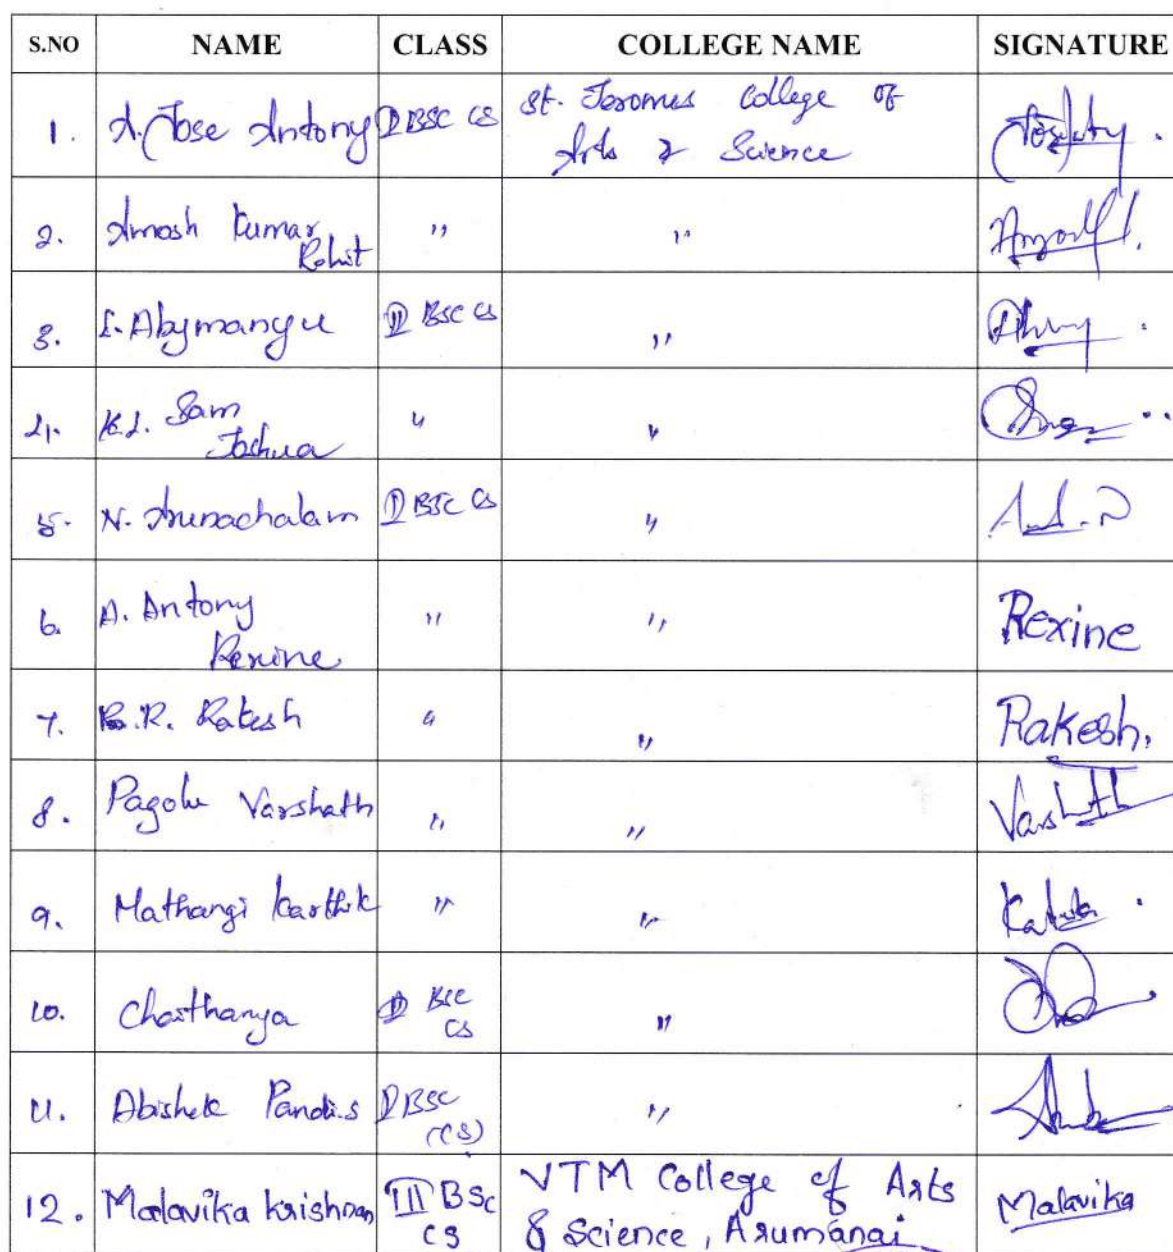 S.NO NAME CLASS COLLEGE NAME SIGNATURE
1. A. Jose Antony I BSC CS St. Jeromes College of
Arts & Science
2. Amosh Kumar " "
Rohit
3. I. Abymangu II BSC CS "
4. K.J. Sam " "
Joshua
5. N. Arunachalam I BSC CS "
6. A. Antony " " Rexine
Rexine
7. B.R. Rakesh " " Rakesh.
8. Pagolu Varshath " " Varshath
9. Mathangi Karthik " "
10. Chaithanya BSC "
CS
11. Abishek Pandi.s I BSC "
(CS)
12. Malavika krishnan III BSc VTM College of Arts Malavika
CS & Science, Arumanai